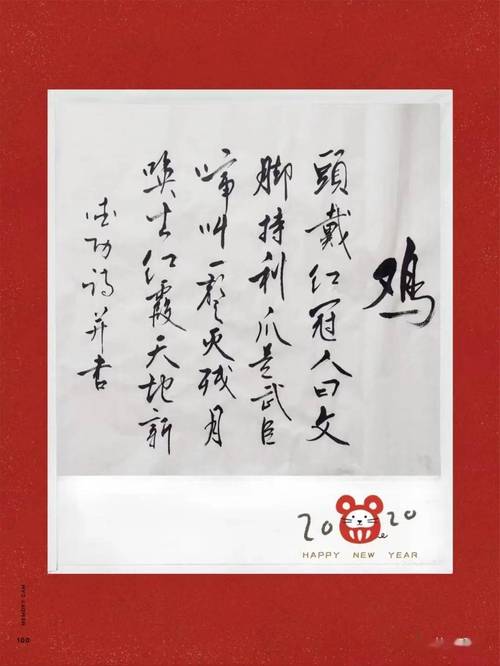 鸡
頭戴红冠人曰文
脚持利爪是武臣
啼叫一聲灭残月
唤出红霞天地新
功诗并书
2020
HAPPY NEW YEAR
MEMORY CAM
100